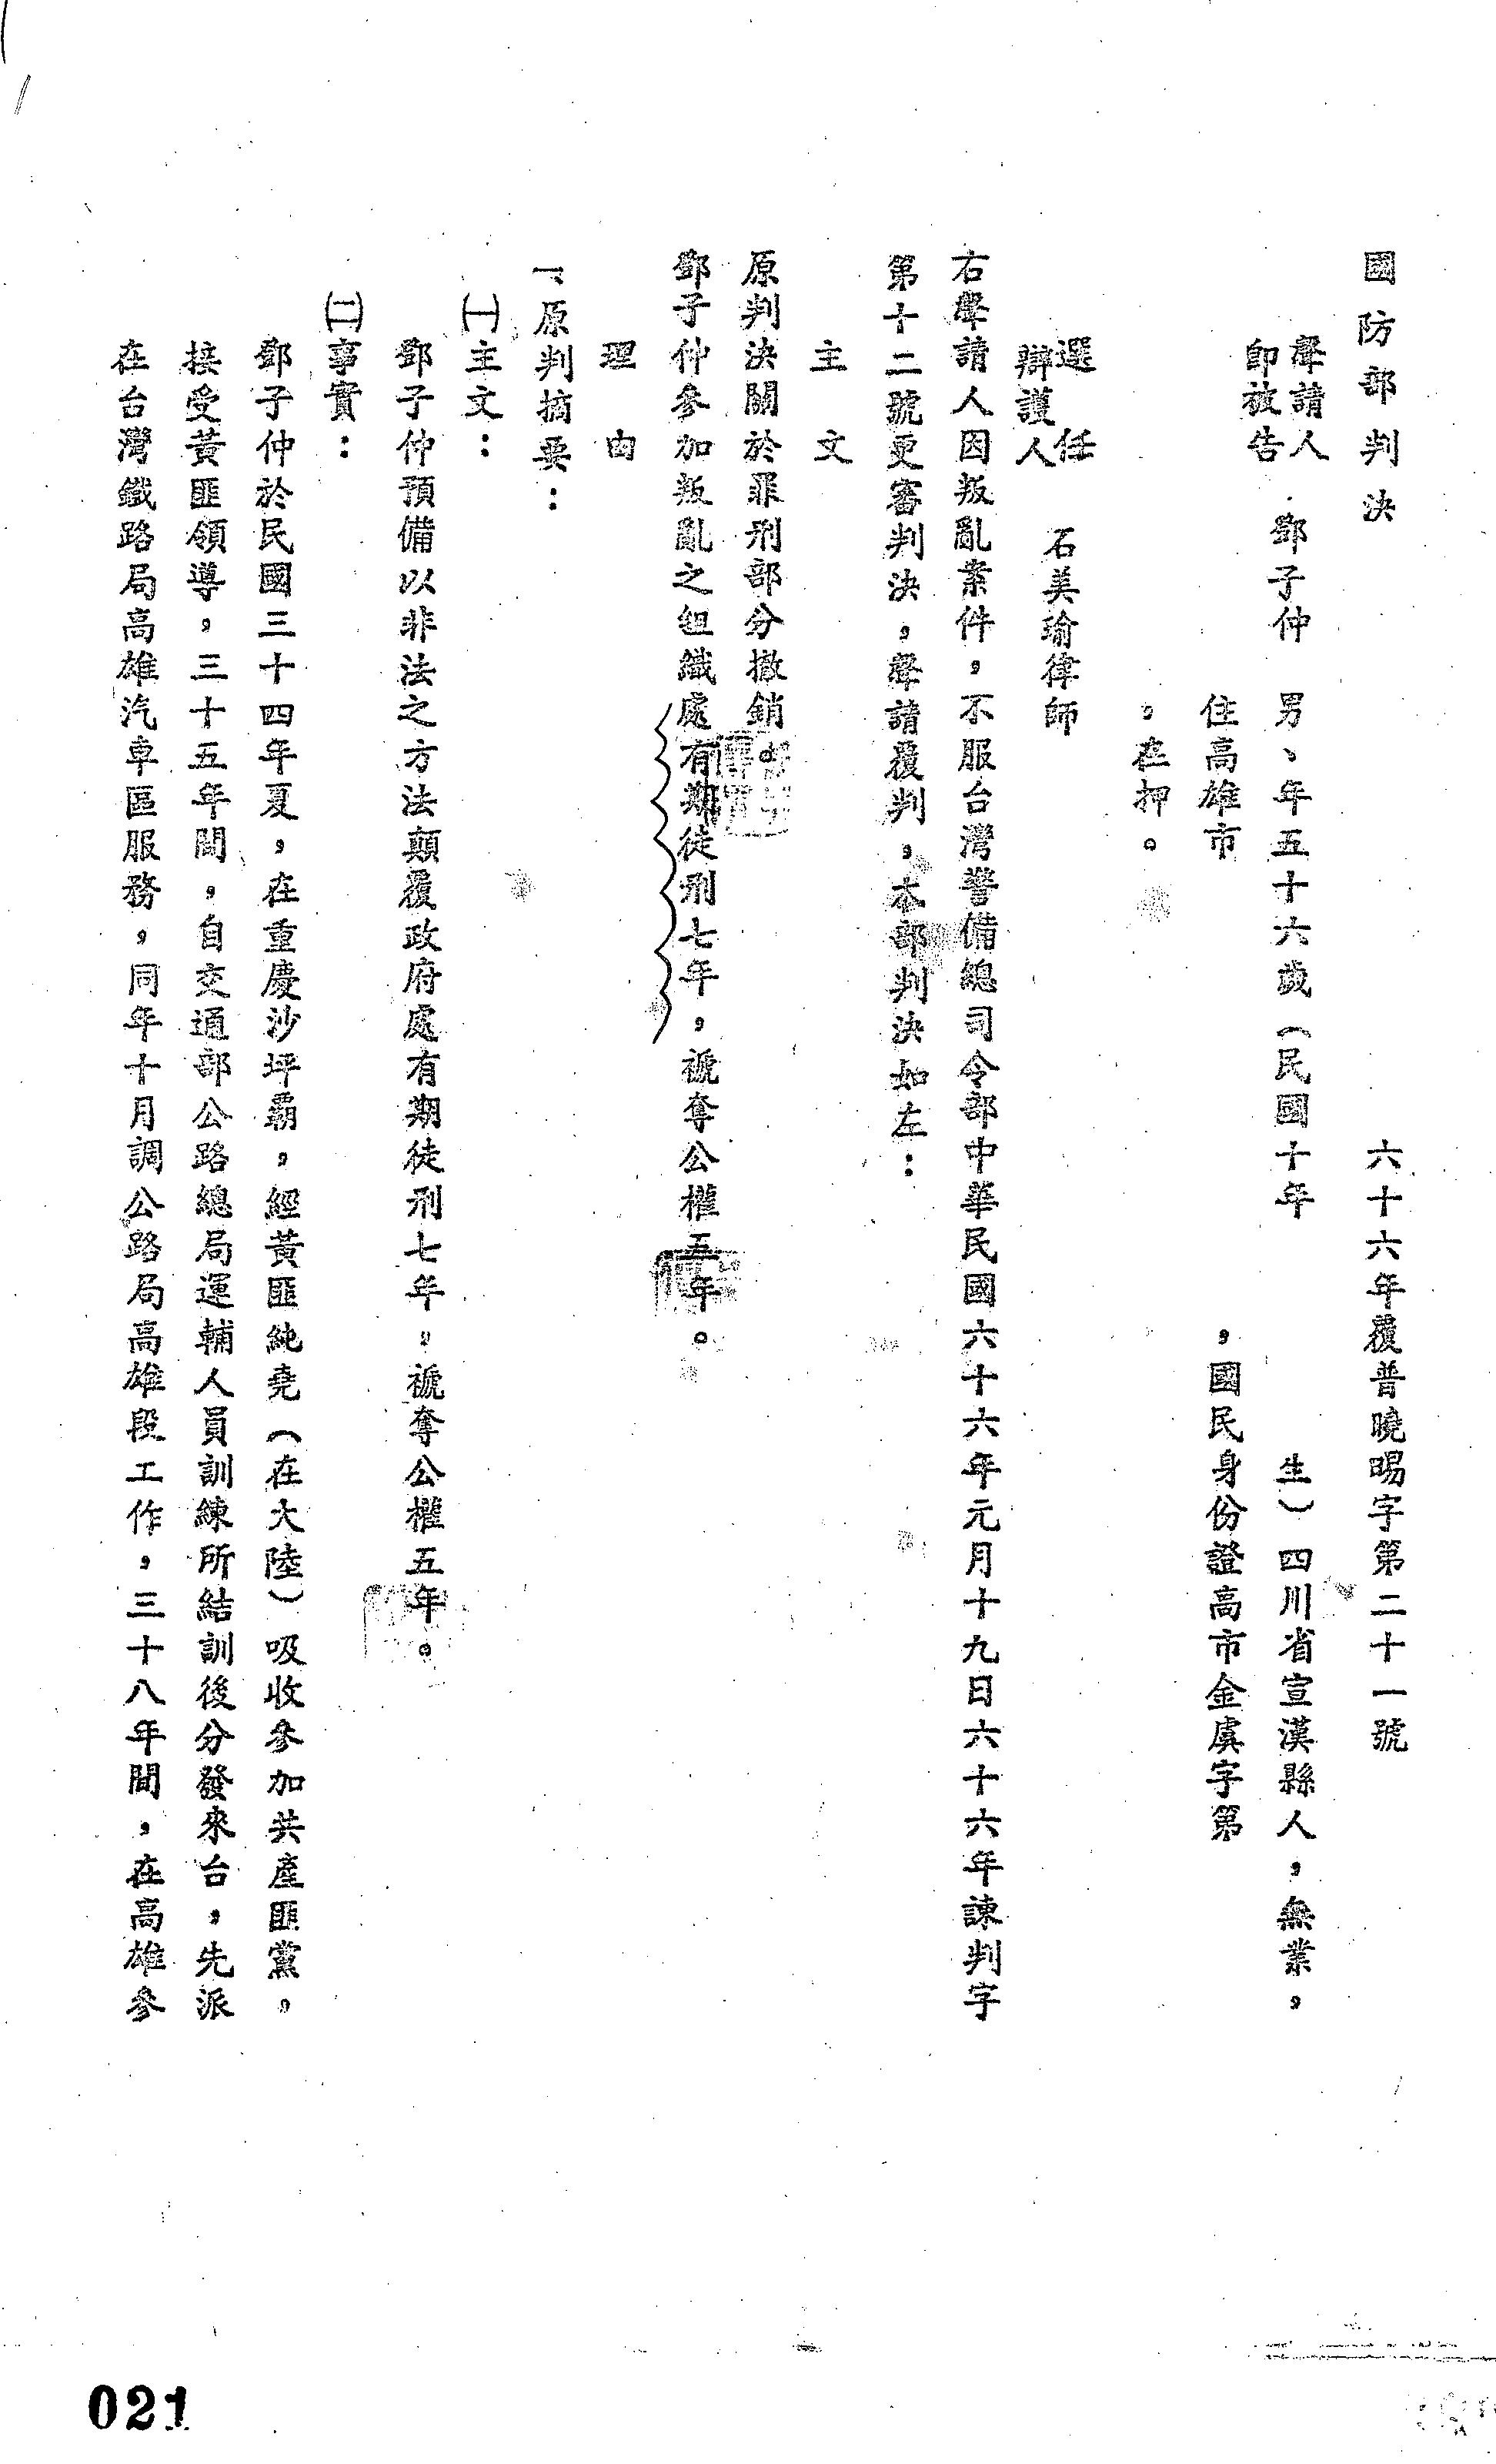 國防部判決
六十六年覆普曉暘字第二十一號
聲請人
即被告
鄧子仲 男、年五十六歲（民國十年 生）四川省宣漢縣人，無業，
住高雄市 ，國民身份證高市金虞字第
，在押。
選任
辯護人
石美瑜律師
右聲請人因叛亂案件，不服台灣警備總司令部中華民國六十六年元月十九日六十六年諫判字
第十二號更審判決，聲請覆判，本部判決如左：
主文
原判決關於罪刑部分撤銷。
鄧子仲參加叛亂之組織處有期徒刑七年，褫奪公權五年。
理由
一、原判摘要：
㈠主文：
鄧子仲預備以非法之方法顛覆政府處有期徒刑七年，褫奪公權五年。
㈡事實：
鄧子仲於民國三十四年夏，在重慶沙坪霸，經黃匪純堯（在大陸）吸收參加共產匪黨，
接受黃匪領導，三十五年間，自交通部公路總局運輔人員訓練所結訓後分發來台，先派
在台灣鐵路局高雄汽車區服務，同年十月調公路局高雄段工作，三十八年間，在高雄參
021